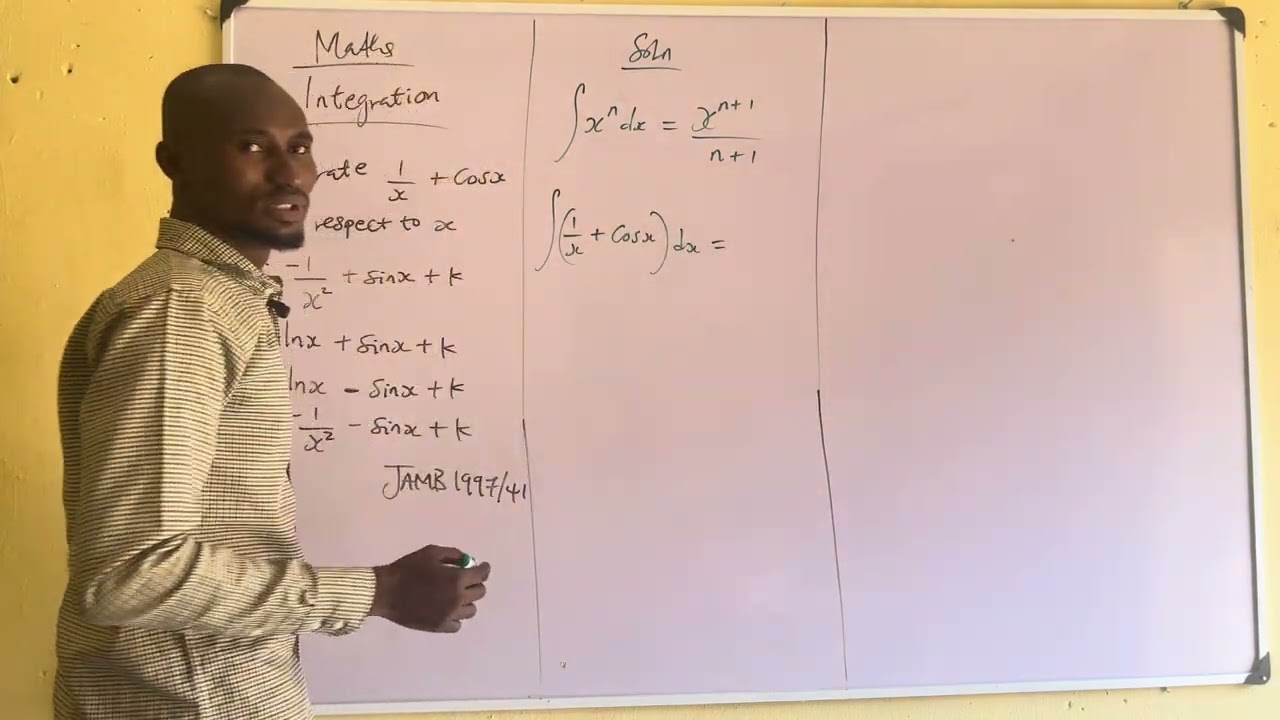 Maths
Integration
rate 1/x + Cosx
respect to x
-1/x² + sinx + k
lnx + sinx + k
lnx - sinx + k
-1/x² - sinx + k
JAMB 1997/41
Soln
∫xⁿdx = xⁿ⁺¹/n+1
∫(1/x + Cosx)dx =